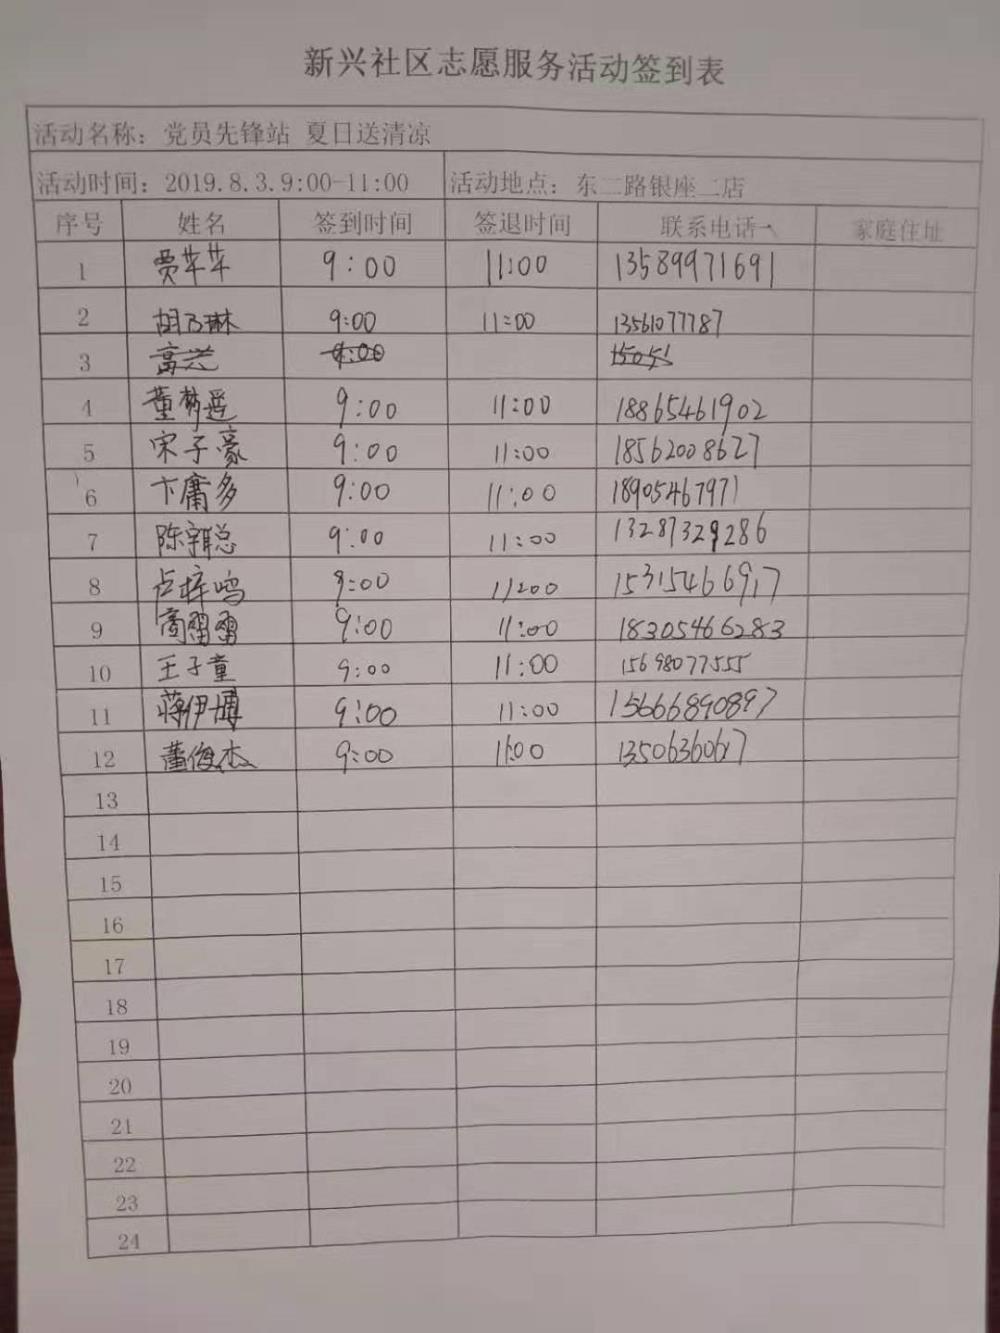 新兴社区志愿服务活动签到表
活动名称：党员先锋站 夏日送清凉
活动时间：2019.8.3.9:00-11:00 活动地点：东二路银座二店
序号 姓名 签到时间 签退时间 联系电话 家庭住址
1 贾苹苹 9:00 11:00 13589971691
2 胡乃琳 9:00 11:00 13561077787
3 高
4 董梦遥 9:00 11:00 18865461902
5 宋子豪 9:00 11:00 18562008627
6 卞庸多 9:00 11:00 18905467971
7 9:00 11:00 13287329286
8 卢梓鸣 9:00 11:00 15315466917
9 9:00 11:00 18305466283
10 王子童 9:00 11:00 15698077555
11 蒋伊博 9:00 11:00 15666890897
12 董俊杰 9:00 11:00
13
14
15
16
17
18
19
20
21
22
23
24